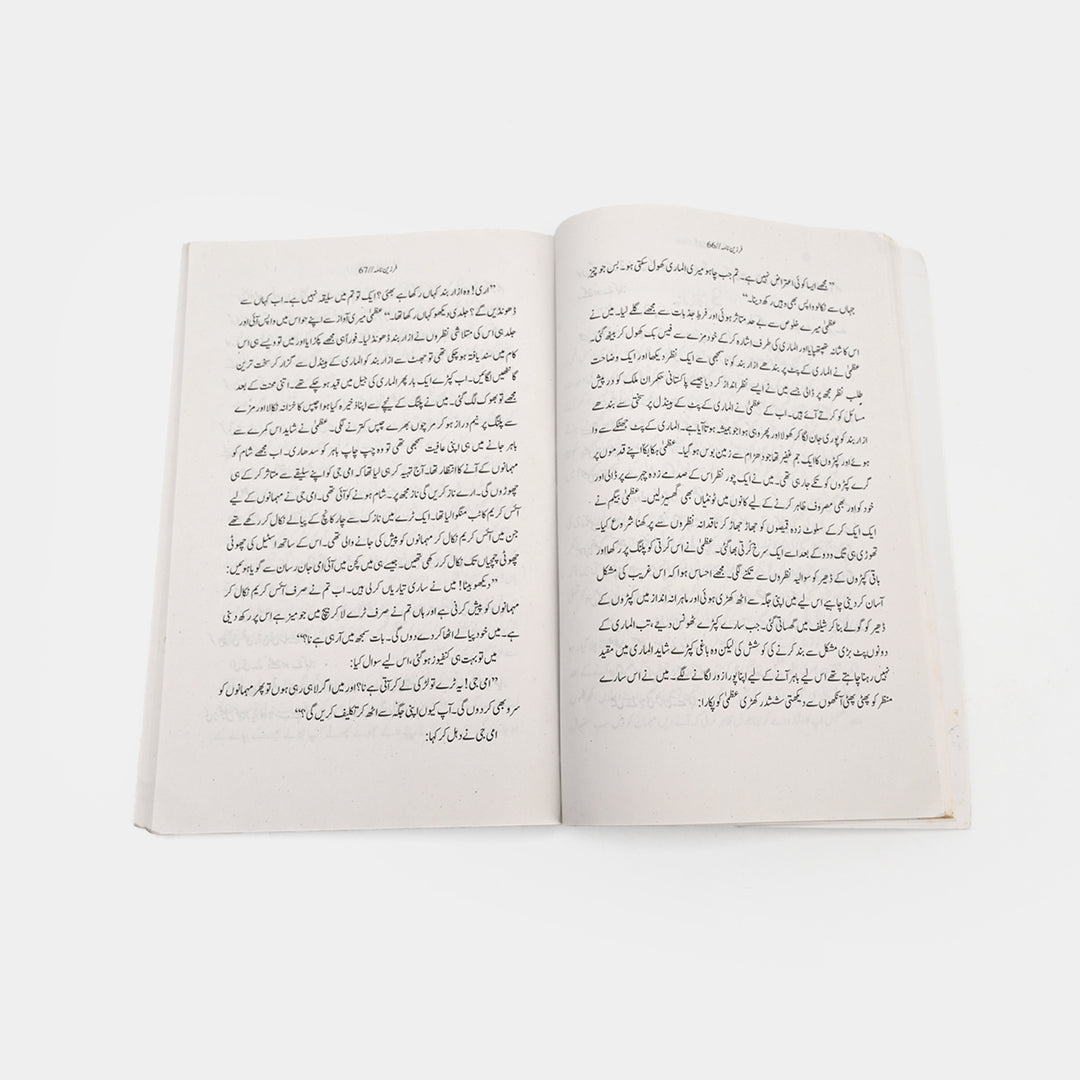 فرزین نامہ // 66
”مجھے ایسا کوئی اعتراض نہیں ہے۔ تم جب چاہو میری الماری کھول سکتی ہو۔ بس جو چیز
جہاں سے نکالو واپس بھی وہیں رکھ دینا۔“
عظمیٰ میرے خلوص سے بے حد متاثر ہوئی اور فرطِ جذبات سے مجھے گلے لیا۔ میں نے
اس کا شانہ تھپتھپایا اور الماری کی طرف اشارہ کر کے خود مزے سے فیس بک کھول کر بیٹھ گئی۔
عظمیٰ نے الماری کے پٹ پر بندھے ازار بند کو نا سمجھی سے ایک نظر دیکھا اور ایک وضاحت
طلب نظر مجھ پر ڈالی جسے میں نے ایسے نظر انداز کر دیا جیسے پاکستانی حکمران ملک کو در پیش
مسائل کو کرتے آئے ہیں۔ اب کے عظمیٰ نے الماری کے پٹ کے ہینڈل پر سختی سے بندھے
ازار بند کو پوری جان لگا کر کھولا اور پھر وہی ہوا جو ہمیشہ ہوتا آیا ہے۔ الماری کے پٹ جھٹکے سے وا
ہوئے اور کپڑوں کا ایک جم غفیر تھا جو دھڑام سے زمین بوس ہو گیا۔ عظمیٰ ہکا بکا اپنے قدموں پر
گرے کپڑوں کو تکے جا رہی تھی۔ میں نے ایک چور نظر اس کے صدمے زدہ چہرے پر ڈالی اور
خود کو اور بھی مصروف ظاہر کرنے کے لیے کانوں میں ٹونٹیاں بھی گھسیڑ لیں۔ عظمیٰ بیگم نے
ایک ایک کر کے سلوٹ زدہ قمیصوں کو جھاڑ جھاڑ کر ناقدانہ نظروں سے پرکھنا شروع کیا۔
تھوڑی ہی تگ و دو کے بعد اسے ایک سرخ کُرتی بھا گئی۔ عظمیٰ نے اس کُرتی کو پلنگ پر رکھا اور
باقی کپڑوں کے ڈھیر کو سوالیہ نظروں سے تکنے لگی۔ مجھے احساس ہوا کہ اس غریب کی مشکل
آسان کر دینی چاہیے اس لیے میں اپنی جگہ سے اٹھ کھڑی ہوئی اور ماہرانہ انداز میں کپڑوں کے
ڈھیر کو گولے بنا کر شیلف میں گھساتی گئی۔ جب سارے کپڑے ٹھونس دیئے، تب الماری کے
دونوں پٹ بڑی مشکل سے بند کرنے کی کوشش کی لیکن وہ باغی کپڑے شاید الماری میں مقید
نہیں رہنا چاہتے تھے اس لیے باہر آنے کے لیے اپنا پورا زور لگانے لگے۔ میں نے اس سارے
منظر کو پھٹی پھٹی آنکھوں سے دیکھتی ششدر کھڑی عظمیٰ کو پکارا:
فرزین نامہ // 67
”اری! وہ ازار بند کہاں رکھا ہے بھئی؟ ایک تو تم میں سلیقہ نہیں ہے۔ اب کہاں سے
ڈھونڈیں گے؟ جلدی دیکھو کہاں رکھا تھا۔“ عظمیٰ میری آواز سے اپنے حواس میں واپس آئی اور
جلد ہی اس کی متلاشی نظروں نے ازار بند ڈھونڈ لیا۔ فوراً ہی مجھے پکڑایا اور میں تو ویسے ہی اس
کام میں سند یافتہ ہو چکی تھی تو جھٹ سے ازار بند کو الماری کے ہینڈل سے گزار کر سخت ترین
گانٹھیں لگائیں۔ اب کپڑے ایک بار پھر الماری کی جیل میں قید ہو چکے تھے۔ اتنی محنت کے بعد
مجھے تو بھوک لگ گئی۔ میں نے پلنگ کے نیچے سے اپنا ذخیرہ کیا ہوا چپس کا خزانہ نکالا اور مزے
سے پلنگ پر نیم دراز ہو کر مرچوں بھرے چپس کترنے لگی۔ عظمیٰ نے شاید اس کمرے سے
باہر جانے میں ہی اپنی عافیت سمجھی تھی تو وہ چپ چاپ باہر کو سدھاری۔ اب مجھے شام کو
مہمانوں کے آنے کا انتظار تھا۔ آج تہیہ کر ہی لیا تھا کہ امی جی کو اپنے سلیقے سے متاثر کر کے ہی
چھوڑوں گی۔ ارے ناز کریں گی ناز مجھ پر۔ شام ہونے کو آئی تھی۔ امی جی نے مہمانوں کے لیے
آئس کریم کا ٹب منگوا لیا تھا۔ ایک ٹرے میں نازک سے چار کانچ کے پیالے نکال کر رکھے تھے
جن میں آئس کریم نکال کر مہمانوں کو پیش کی جانے والی تھی۔ اس کے ساتھ اسٹیل کی چھوٹی
چھوٹی چمچیاں تک نکال کر رکھی تھیں۔ جیسے ہی میں کچن میں آئی امی جان رسان سے گویا ہوئیں:
”دیکھو بیٹا! میں نے ساری تیاریاں کر لی ہیں۔ اب تم نے صرف آئس کریم نکال کر
مہمانوں کو پیش کرنی ہے اور ہاں تم نے صرف ٹرے لا کر بیچ میں جو میز ہے اس پر رکھ دینی
ہے۔ میں خود پیالے اٹھا کر دے دوں گی۔ بات سمجھ میں آ رہی ہے نا؟“
میں تو بہت ہی کنفیوز ہو گئی، اس لیے سوال کیا:
”امی جی! یہ ٹرے تو لڑکی لے کر آتی ہے نا؟ اور میں اگر لا ہی رہی ہوں تو پھر مہمانوں کو
سرو بھی کر دوں گی۔ آپ کیوں اپنی جگہ سے اٹھ کر تکلیف کریں گی؟“
امی جی نے دہل کر کہا: